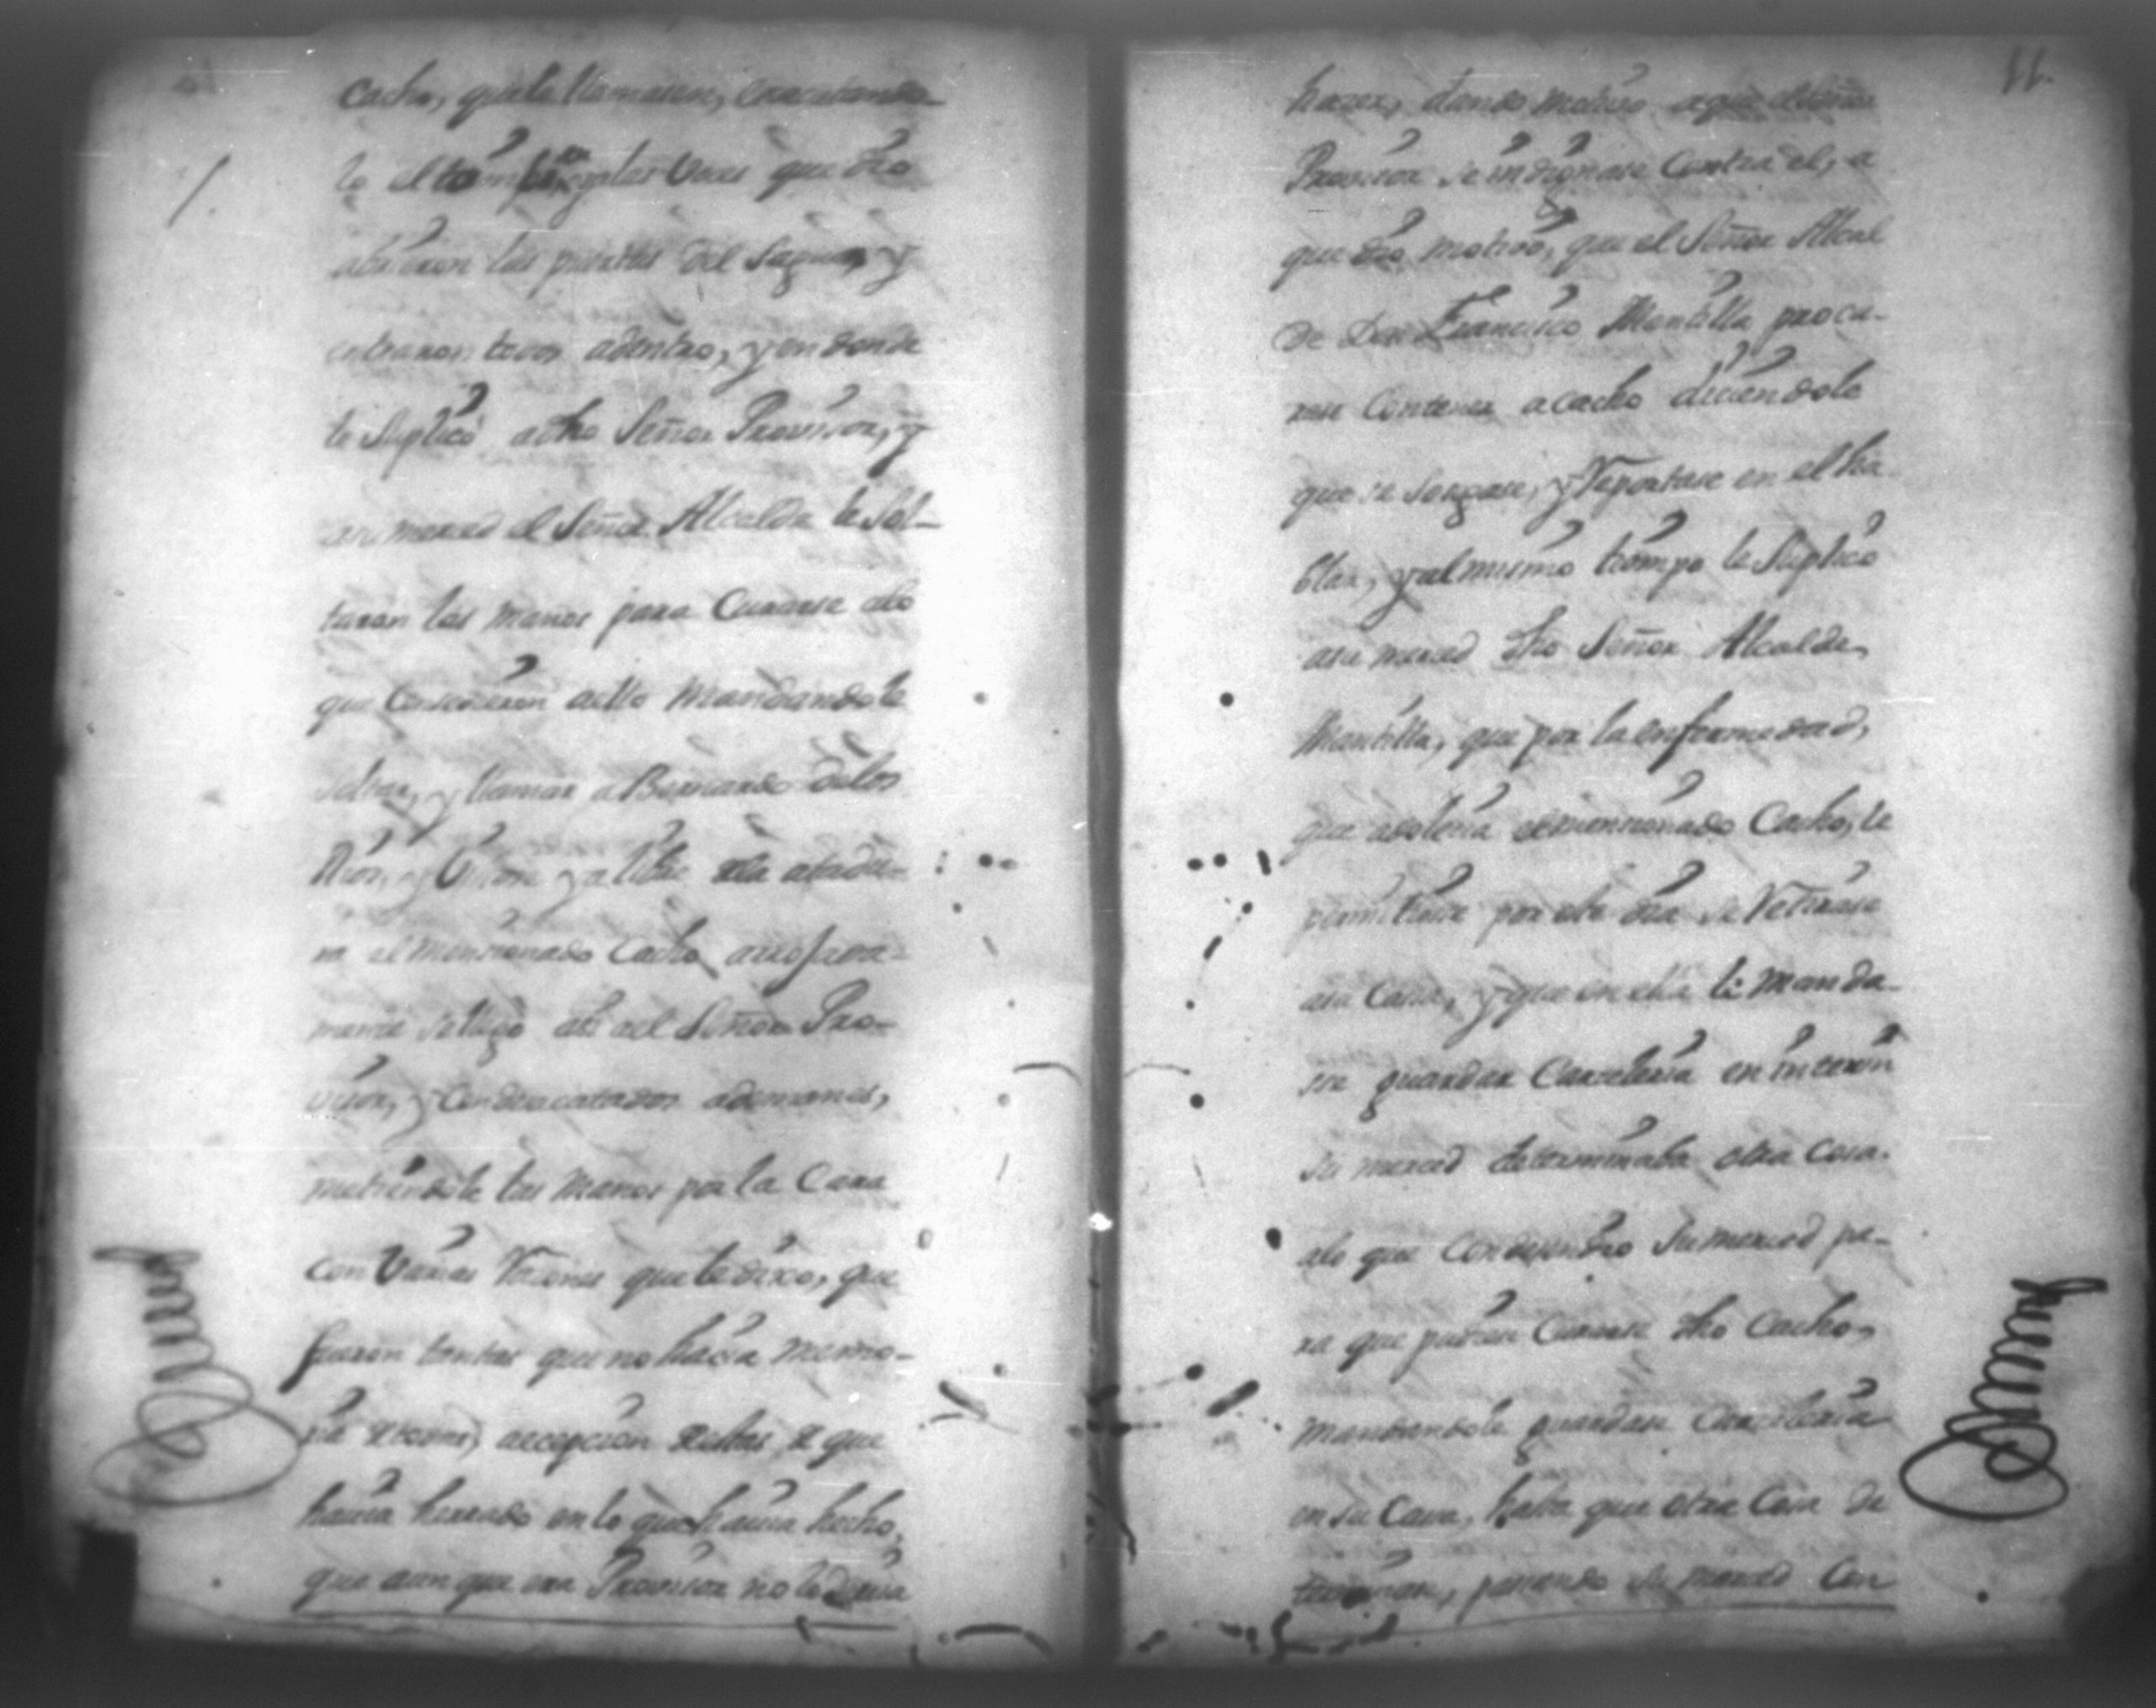 Cacho, que le llamasen,
lo el tiempo y las Vozes que dio
abrieron las puertas del Saguan, y
entraron todos adentro, y en donde
le Suplicó a dho Señor Provisor, y
a su merced el Señor Alcalde le sol-
taran las manos para Curarse a lo
que Conscedieron a ello Mandandole
soltar, y llamar a Bernardo de los
Rios, y Viendose ya libre de la atadu-
ra el mencionado Cacho
marse se llegó al Señor Pro-
visor, y Con desacatados ademanes,
metiendole las Manos por la Cara
Con Varias Razones que le dixo, que
fueron tantas que no hacia memo-
ria de todas, a ecepcion de estas, de que
hauia herrado en lo que hauia hecho,
que aun que era Provisor no lo deuia
hazer, dando motivo a que el Señor
Provisor se indignase Contra el, a
que dio motivo, que el Señor Alcal
de Don Francisco Mantilla procu-
rase Contener a Cacho diciendole
que se sosegase, y Reportase en el ha
blar, y al mismo tiempo le Suplicó
a su merced dho Señor Alcalde,
Mantilla, que por la enfermedad,
que adolecia el mencionado Cacho, le
permitiese por este dia se Retirase
a su Casa, y que en ella le manda-
se guardar Carceleria en interin
su merced determinaba otra Cosa.
a lo que Condesendio Su merced pa-
ra que pudiese Curarse dho Cacho,
mandandole guardase Carceleria
en su Casa, hasta que otra Cosa de
terminase, pasando su merced Con
11.